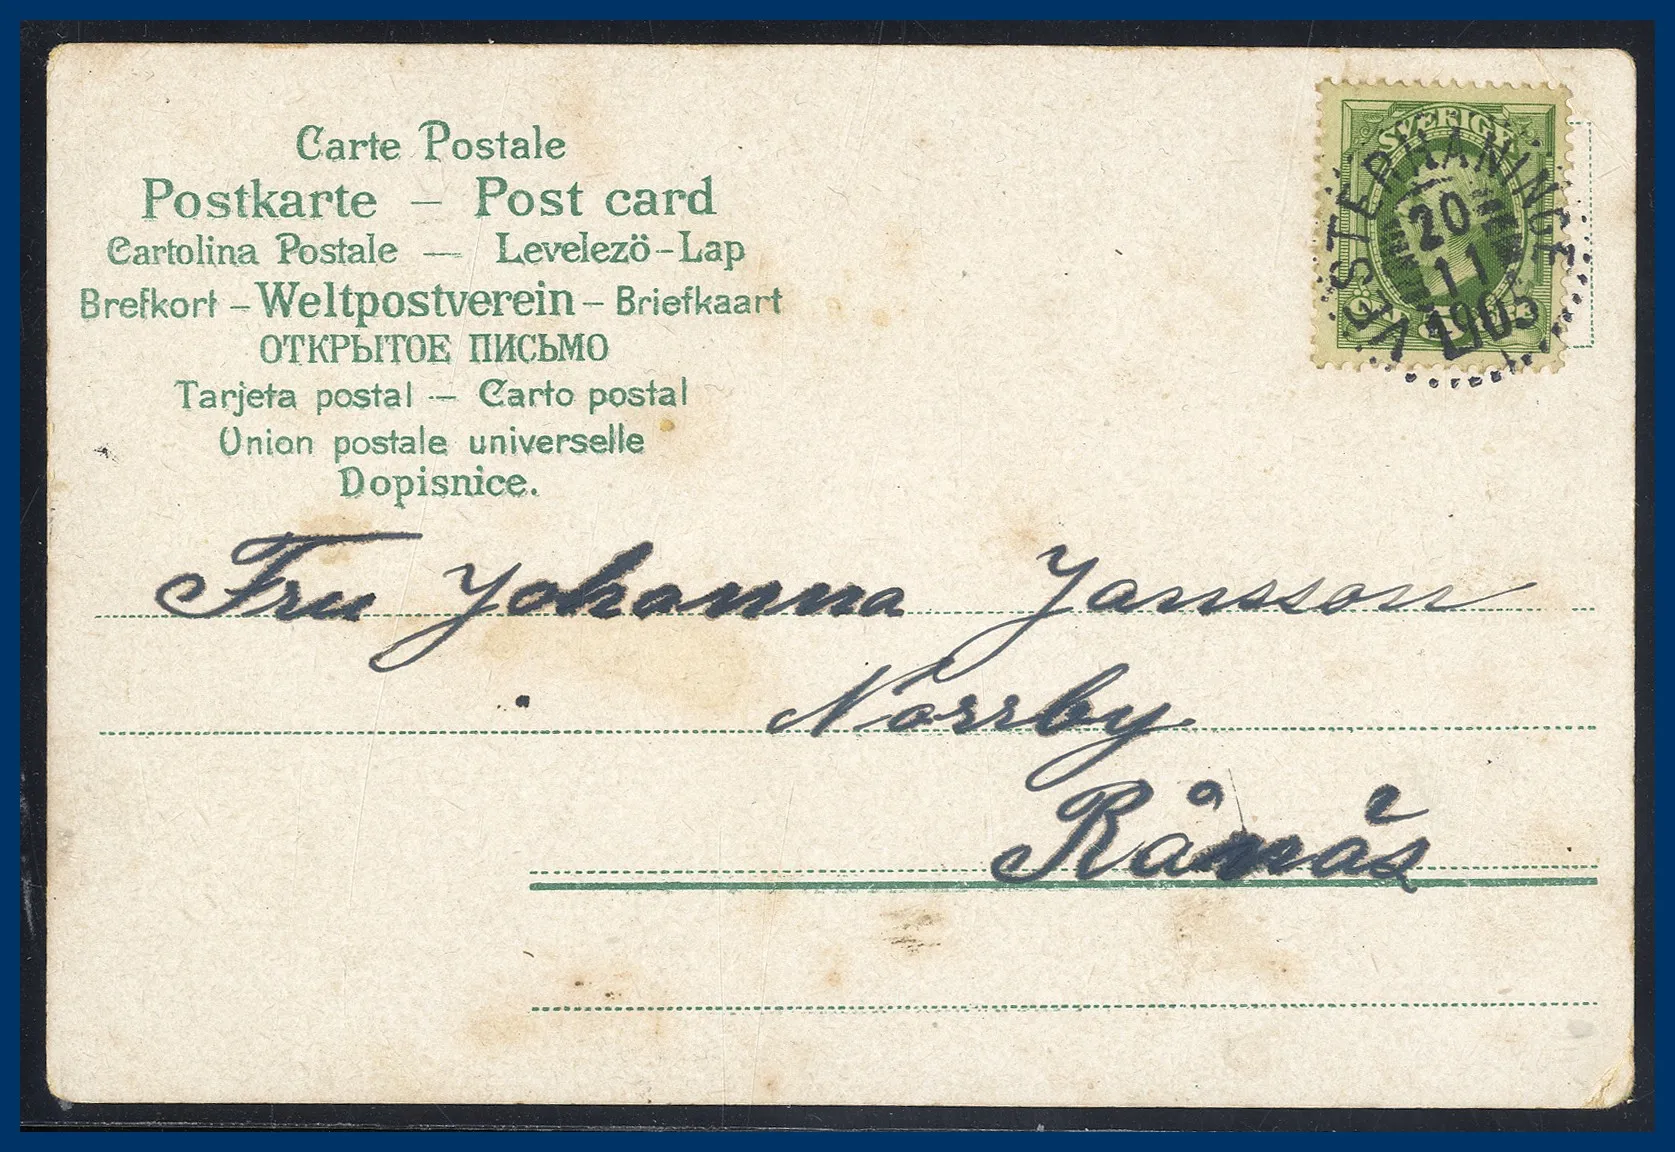 Carte Postale
Postkarte – Post card
Cartolina Postale — Levelezö-Lap
Brefkort – Weltpostverein – Briefkaart
ОТКРЫТОЕ ПИСЬМО
Tarjeta postal — Carto postal
Union postale universelle
Dopisnice.
SVERIGE
VESTERHANINGE
20
11
1905
Fru Johanna Jansson
Norrby
Rånäs